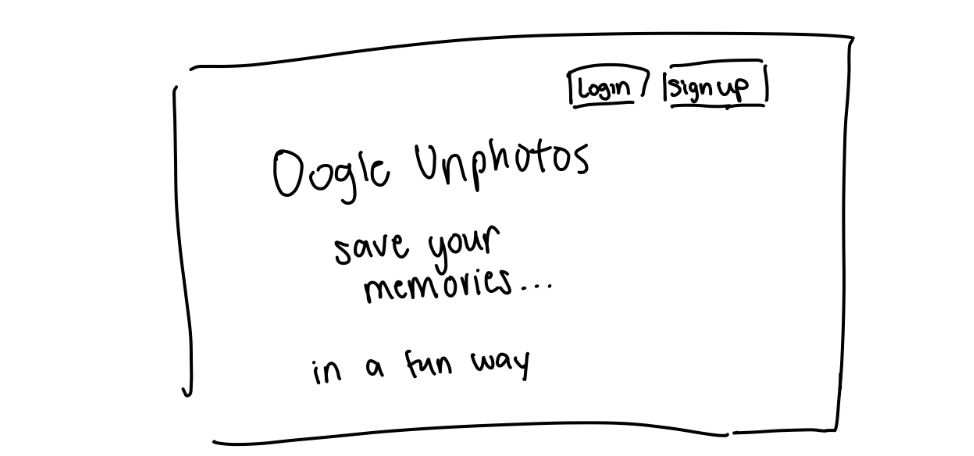 Login
Sign up
Oogle Unphotos
save your
memories...
in a fun way